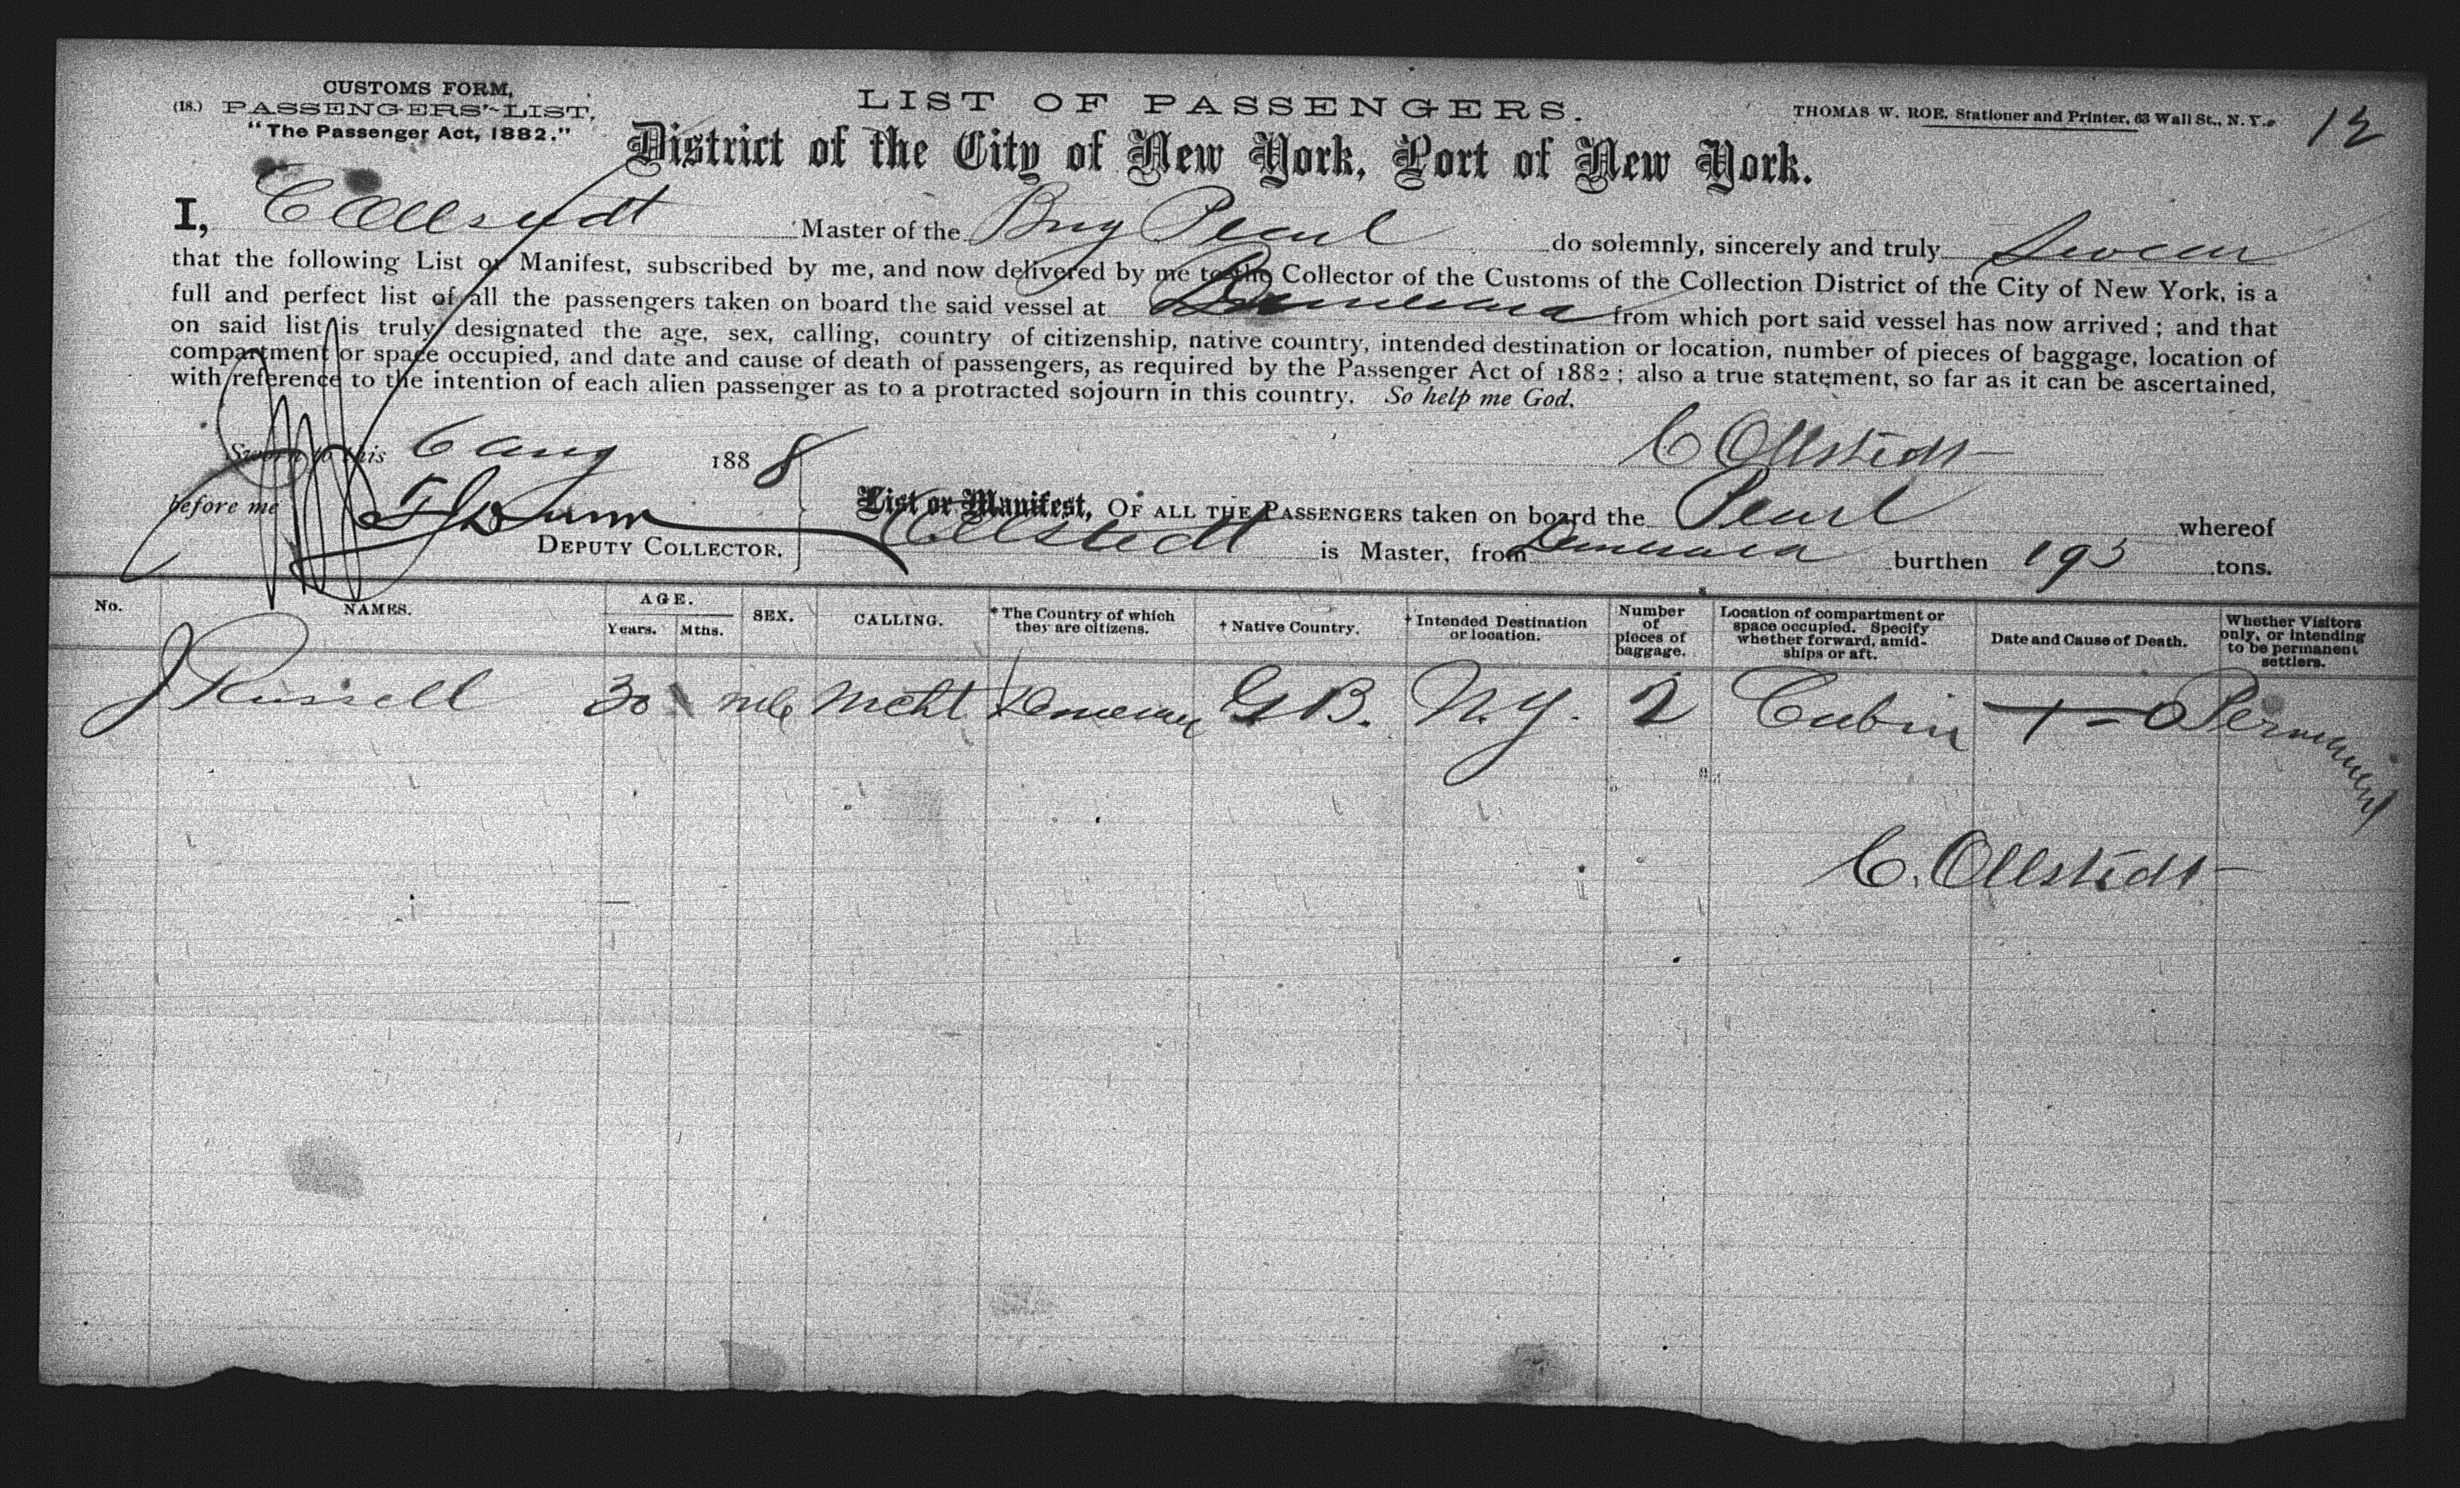 CUSTOMS FORM,
(18.) PASSENGERS' LIST,
"The Passenger Act, 1882."
LIST OF PASSENGERS.
THOMAS W. ROE, Stationer and Printer, 63 Wall St., N. Y.
District of the City of New York, Port of New York.
I, C Ollstedt Master of the Brig Pearl do solemnly, sincerely and truly Swear
that the following List or Manifest, subscribed by me, and now delivered by me to the Collector of the Customs of the Collection District of the City of New York, is a
full and perfect list of all the passengers taken on board the said vessel at Demerara from which port said vessel has now arrived; and that
on said list is truly designated the age, sex, calling, country of citizenship, native country, intended destination or location, number of pieces of baggage, location of
compartment or space occupied, and date and cause of death of passengers, as required by the Passenger Act of 1882; also a true statement, so far as it can be ascertained,
with reference to the intention of each alien passenger as to a protracted sojourn in this country. So help me God.
Sworn to this 6 aug 1888
C Ollstedt
before me
DEPUTY COLLECTOR.
List or Manifest, OF ALL THE PASSENGERS taken on board the Pearl whereof
C Ollstedt is Master, from Demerara burthen 193 tons.
No. NAMES. AGE. Years. Mths. SEX. CALLING. * The Country of which they are citizens. † Native Country. † Intended Destination or location. Number of pieces of baggage. Location of compartment or space occupied. Specify whether forward, amidships or aft. Date and Cause of Death. Whether Visitors only, or intending to be permanent settlers.
J Russell 30 Mcht G B. N.Y. 2 Cabin Permanent
C. Ollstedt